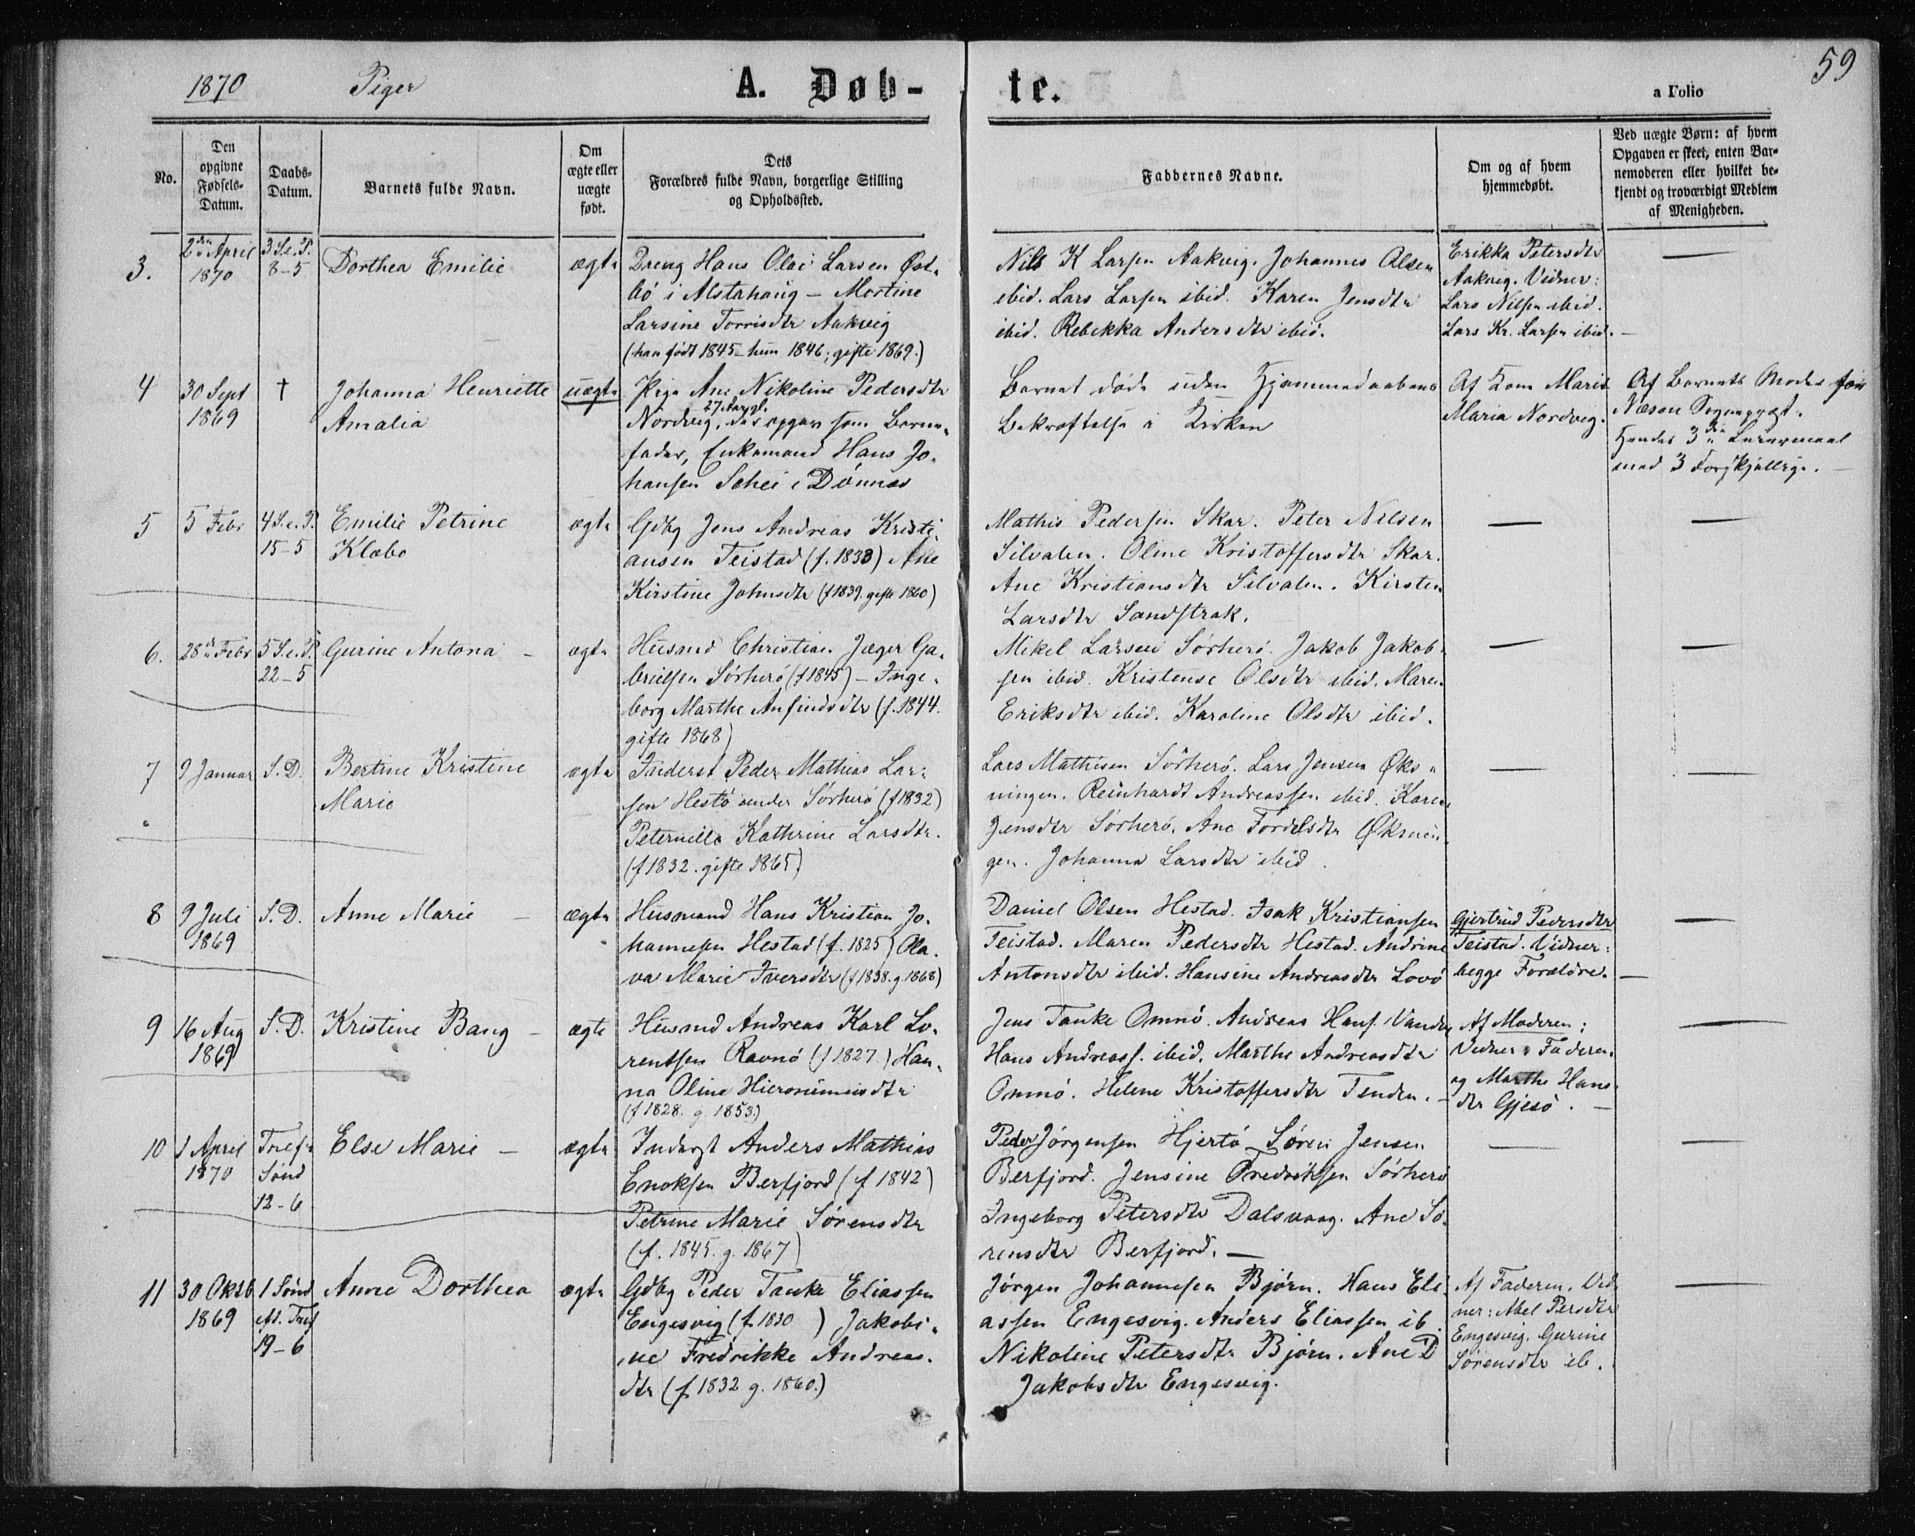 1870 Piger A. Døb- te. a Folio 59
No.
Den opgivne Fødsels-Datum.
Daabs-Datum.
Barnets fulde Navn.
Om ægte eller uægte født.
Dets Forældres fulde Navn, borgerlige Stilling og Opholdssted.
Faddernes Navne.
Om og af hvem hjemmedøbt.
Ved uægte Børn: af hvem Opgaven er skeet, enten Barnemoderen eller hvilket bekjendt og troværdigt Medlem af Menigheden.
3.
2den April
1870
3 S. e. P.
8-5
Dorthea Emilie
ægte
Hans Olai Larsen Øst-
bö i Alstahaug - Martine
Larsine Torrisdtr Aakvig
(han født 1845 - hun 1846; gifte 1869.)
Nils K Larsen Aakvig. Johannes Olsen
ibid. Lars Larsen ibid. Karen Jensdtr
ibid. Rebekka Andersdtr ibid.
Erikka Petersdtr
Aakvig. Vidner:
Lars Nilsen ibid.
Lars Kr. Larsen ibid. -
—
4
30 Sept
1869
†
Johanna Henriette
Amalia
uægte
Pige Ane Nikoline Pedersdtr
27 Aar gl.
Nordvig, der opgav som Barne-
fader, Enkemand Hans Jo-
hansen Schei i Dönnes
Barnet døde uden Hjemmedaabens
Bekræftelse i Kirken
Af Kone Maris
Maria Nordvig.
Af Barnets Moder for
Næsne Sogneprest.
Hendes 3die Leiermaal
med 3 Forskjellige. -
5
5 Febr
4 S. e. P.
15-5
Emilie Petrine
Klæbo
ægte
Gdbg Jens Andreas Kristi-
ansen Teistad (f. 1838) Ane
Kirstine Johnsdtr (f 1839. gifte 1860)
Mathis Pedersen Skar. Peter Nilsen
Silvalen. Oline Kristoffersdtr Skar.
Ane Kristiansdtr Silvalen. Kirsten
Larsdtr Sandstrak.
—
—
6.
28de Febr
5 S. e. P.
22-5
Gurine Antona -
ægte
Husmd Christian Jæger Ga-
brielsen Sörherö (f 1845) - Inge-
borg Marthe Anfindsdtr (f. 1844.
gifte 1868)
Mikel Larsen Sörherö. Jakob Jakob-
sen ibid. Kristense Olsdtr ibid. Maren
Eriksdtr ibid. Karoline Olsdtr ibid.
—
—
7
9 Januar
S. D.
Bertine Kristine
Marie
ægte
Inderst Peder Mathias Lar-
sen Hestö under Sörherö (f 1832)
Peternille Kathrine Larsdtr.
(f 1832. gifte 1865)
Lars Mathisen Sörherö. Lars Jensen Øks-
ningen. Reinhardt Andreassen ibid. Karen
Jensdtr Sörherö. Ane Fordelsdtr Øksnin-
gen. Johanna Larsdtr ibid.
—
—
8
9 Juli
1869
S. D.
Anne Marie -
ægte
Husmand Hans Kristian Jo-
hannesen Hestad (f. 1825) Ola-
va Marie Iversdtr (f 1838. g. 1868)
Daniel Olsen Hestad. Isak Kristiansen
Teistad. Maren Pedersdtr Hestad. Andrine
Antonsdtr ibid. Hansine Andreasdtr Lovö
Gjertrud Pedersdtr
Teistad. Vidner:
begge Forældre. -
—
9
16 Aug
1869
S. D.
Kristine Bang -
ægte
Husmd Andreas Karl Lo-
rentsen Ravnö (f 1827.) Han-
na Oline Hieronimusdtr
(f 1828. g. 1853.)
Jens Tanke Omnö. Andreas Hans.
Hans Andreass. ibid. Marthe Andreasdtr
Omnö. Helene Kristoffersdtr Tenden. -
Af Moderen:
Vidner: Faderen.
og Marthe Hans-
dtr Gjesö. -
—
10
1 April
1870
Tref-
Sönd
12-6
Else Marie -
ægte
Inderst Anders Mathias
Enoksen Berfjord (f 1842)
Petrine Marie Sörensdtr
(f. 1845. g. 1867)
Peder Jörgensen Hjertö Sören Jensen
Berfjord. Jensine Fredriksen Sörherö
Ingeborg Petersdtr Dalsvaag. Ane Sö-
rensdtr Berfjord. -
—
—
11
30 Oktb
1869
1 Sönd
eft. Tref
19-6
Anne Dorthea
ægte
Gdbg Peder Tanke Eliassen
Engesvig (f. 1830 ) Jakobi-
ne Fredrikke Andreas-
dtr (f. 1832 g. 1860.)
Jörgen Johannesen Björn. Hans Eli-
assen Engesvig. Anders Eliassen ib.
Nikoline Petersdtr Björn. Ane D
Jakobsdtr Engesvig.
Af Faderen. Vid-
ner: Abel Persdtr
Engesvig. Gurine
Sörensdtr ib.
—